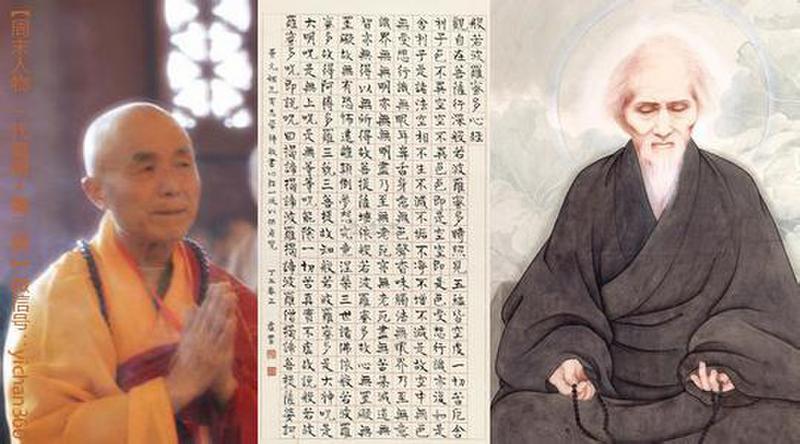 般若波羅蜜多心經
觀自在菩薩行深般若波羅蜜多時照見五蘊皆空度一切苦厄舍
利子色不異空空不異色色即是空空即是色受想行識亦復如是
舍利子是諸法空相不生不滅不垢不淨不增不減是故空中無色
無受想行識無眼耳鼻舌身意無色聲香味觸法無眼界乃至無意
識界無無明亦無無明盡乃至無老死亦無老死盡無苦集滅道無
智亦無得以無所得故菩提薩埵依般若波羅蜜多故心無罣礙無
罣礙故無有恐怖遠離顛倒夢想究竟涅槃三世諸佛依般若波羅
蜜多故得阿耨多羅三藐三菩提故知般若波羅蜜多是大神咒是
大明咒是無上咒是無等等咒能除一切苦真實不虛故說般若波
羅蜜多咒即說咒曰揭諦揭諦波羅揭諦波羅僧揭諦菩提薩婆訶
【周末人物 yichan360